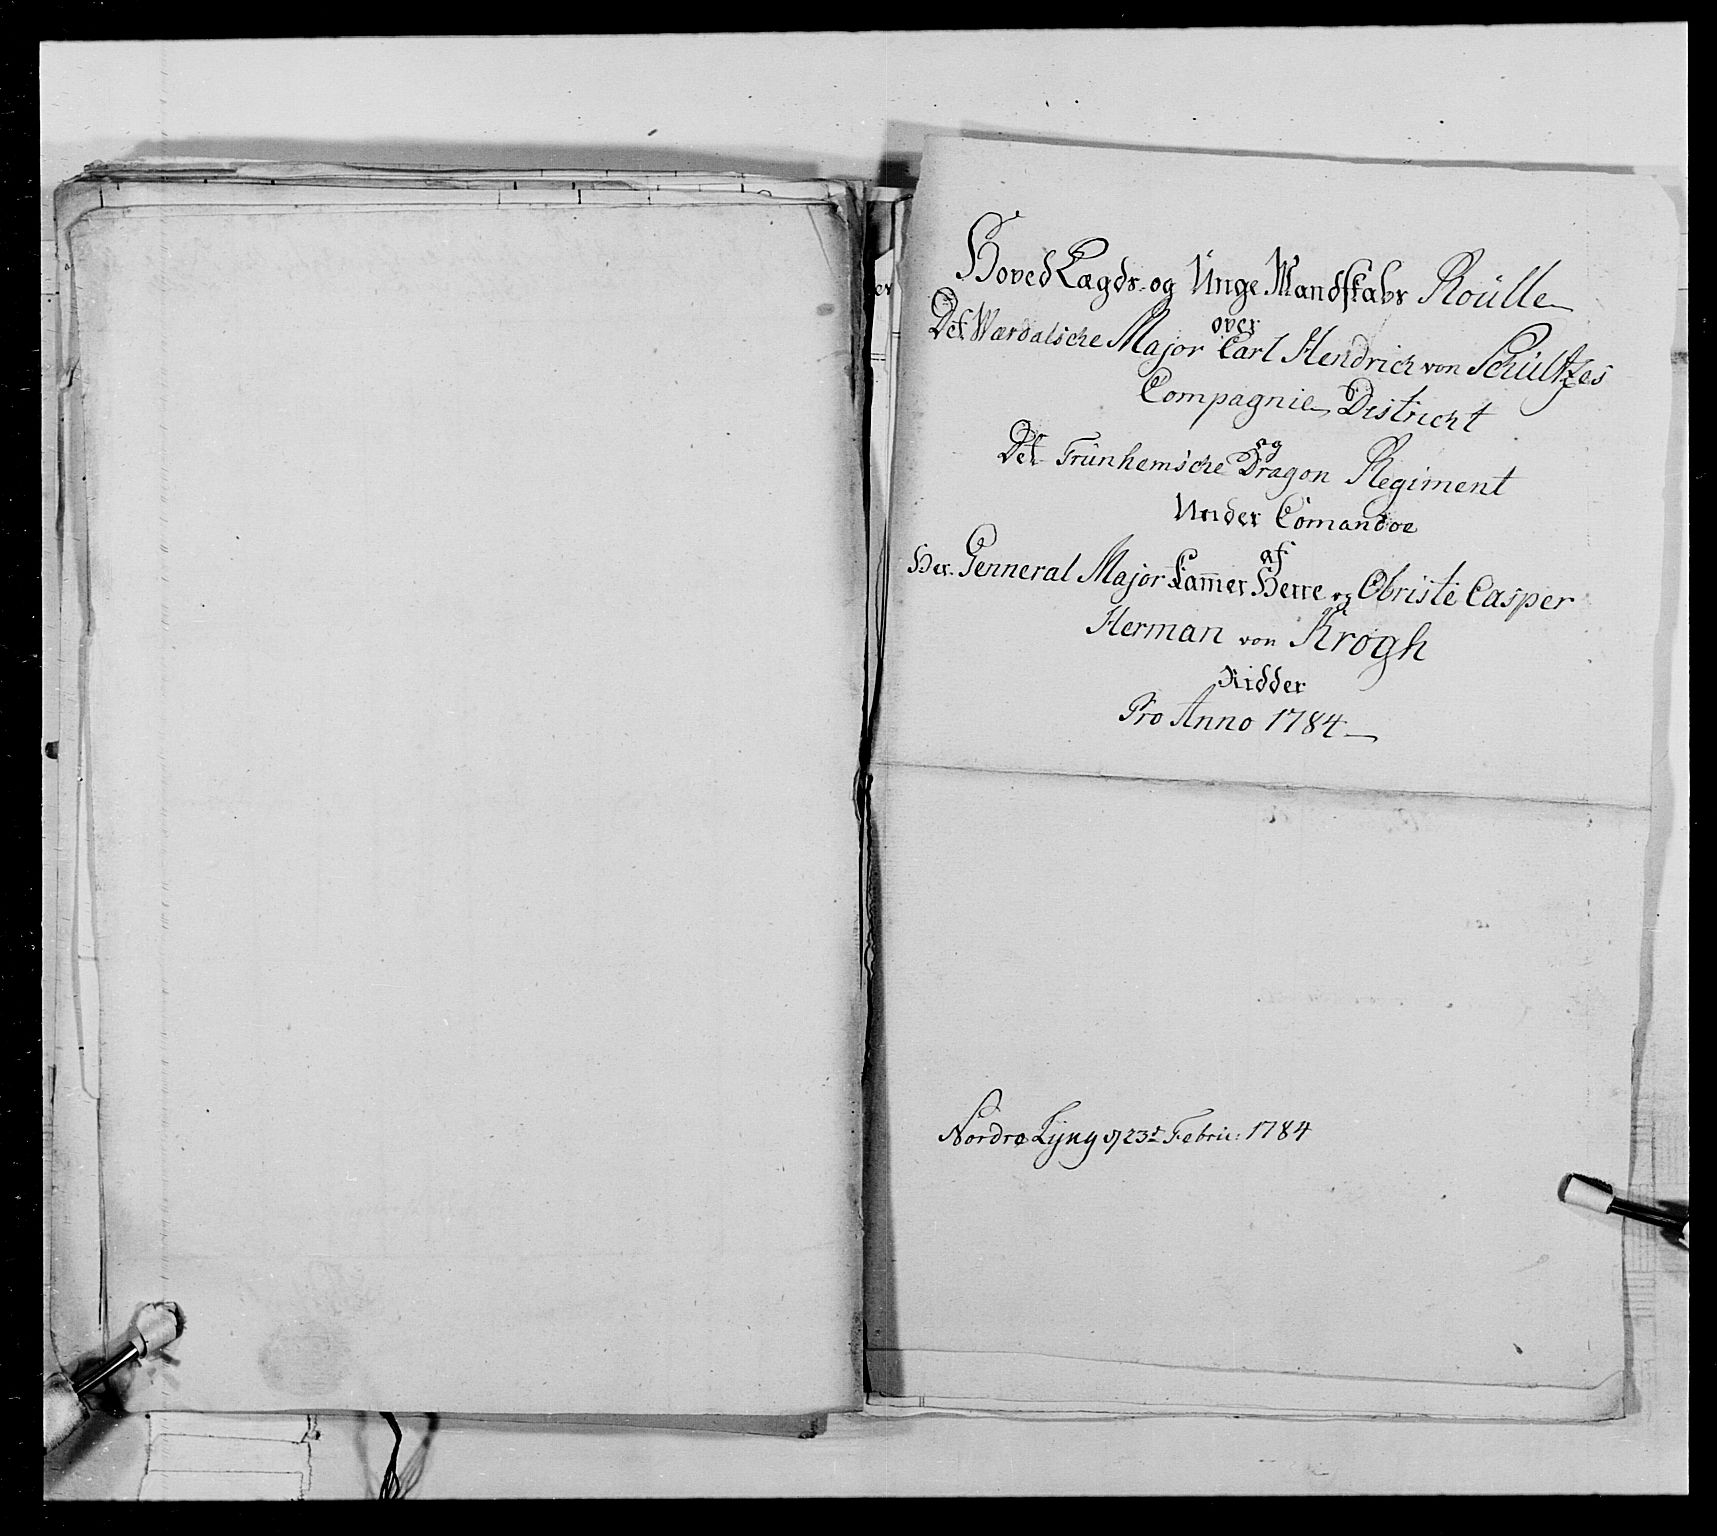 Hoved Lægds- og Unge Mandskabs Roülle
over
Det Wærdalsche Major Carl Hendrich von Schültzes
Compagnie Districht
og
Det Trünhemsche Dragon Regiment
Under Comandoe
af
Her. Genneral Major Kam̅er Herre og Obriste Casper
Herman von Krogh
Ridder
Pro Anno 1784
Nordre Lyng d 23d Febru: 1784